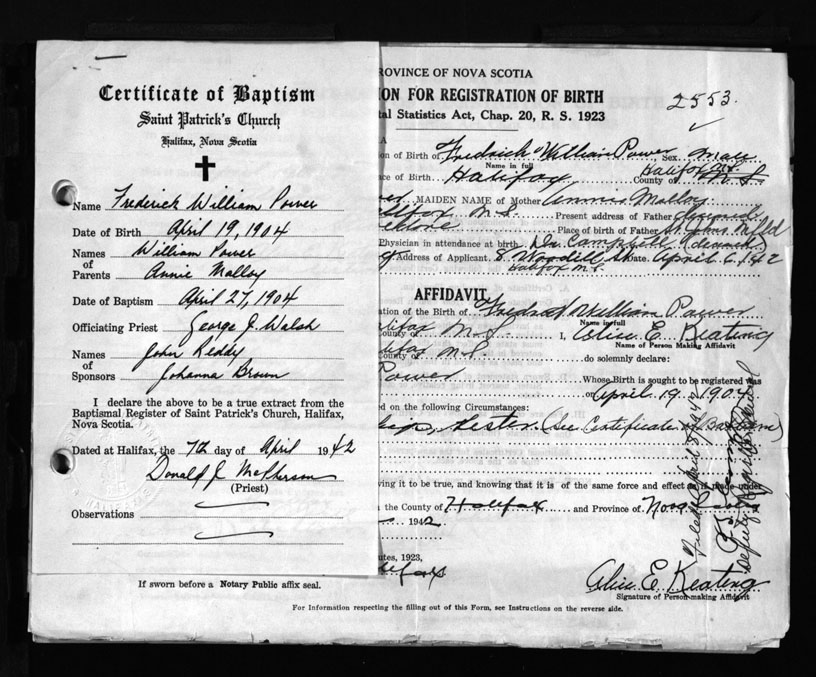 Certificate of Baptism
Saint Patrick's Church
Halifax, Nova Scotia
Name Frederick William Power
Date of Birth April 19, 1904
Names of Parents William Power
Annie Malloy
Date of Baptism April 27, 1904
Officiating Priest George J. Walsh
Names of Sponsors John Reddy
Johanna Brown
I declare the above to be a true extract from the
Baptismal Register of Saint Patrick's Church, Halifax,
Nova Scotia.
Dated at Halifax, the 7th day of April 1942
Donald J. McPherson
(Priest)
Observations
ROVINCE OF NOVA SCOTIA
ION FOR REGISTRATION OF BIRTH
tal Statistics Act, Chap. 20, R. S. 1923
2553.
ion of Birth of Fredrick William Power, Sex Male
Name in full
ce of Birth Halifax County of Halifax
MAIDEN NAME of Mother Annie Malloy
Present address of Father
Place of birth of Father St. Johns Nfld
Physician in attendance at birth Dr. Campbell
Address of Applicant 8 Woodill St Date April 6, 1942
Halifax N.S.
AFFIDAVIT
ation of the Birth of William Power
Name in full
alifax N.S. I, Alice E. Keating
Name of Person Making Affidavit
County of alifax N.S. do solemnly declare:
Power Whose Birth is sought to be registered was
on April 19, 1904
ed on the following Circumstances:
Sister (See Certificate of Baptism)
ving it to be true, and knowing that it is of the same force and effect as if made under
n the County of Halifax and Province of Nova Scotia
1942
utes, 1923,
alifax
Alice E. Keating
Signature of Person making Affidavit
Filed April 8, 1942
Deputy Registrar General
If sworn before a Notary Public affix seal.
For Information respecting the filling out of this Form, see Instructions on the reverse side.